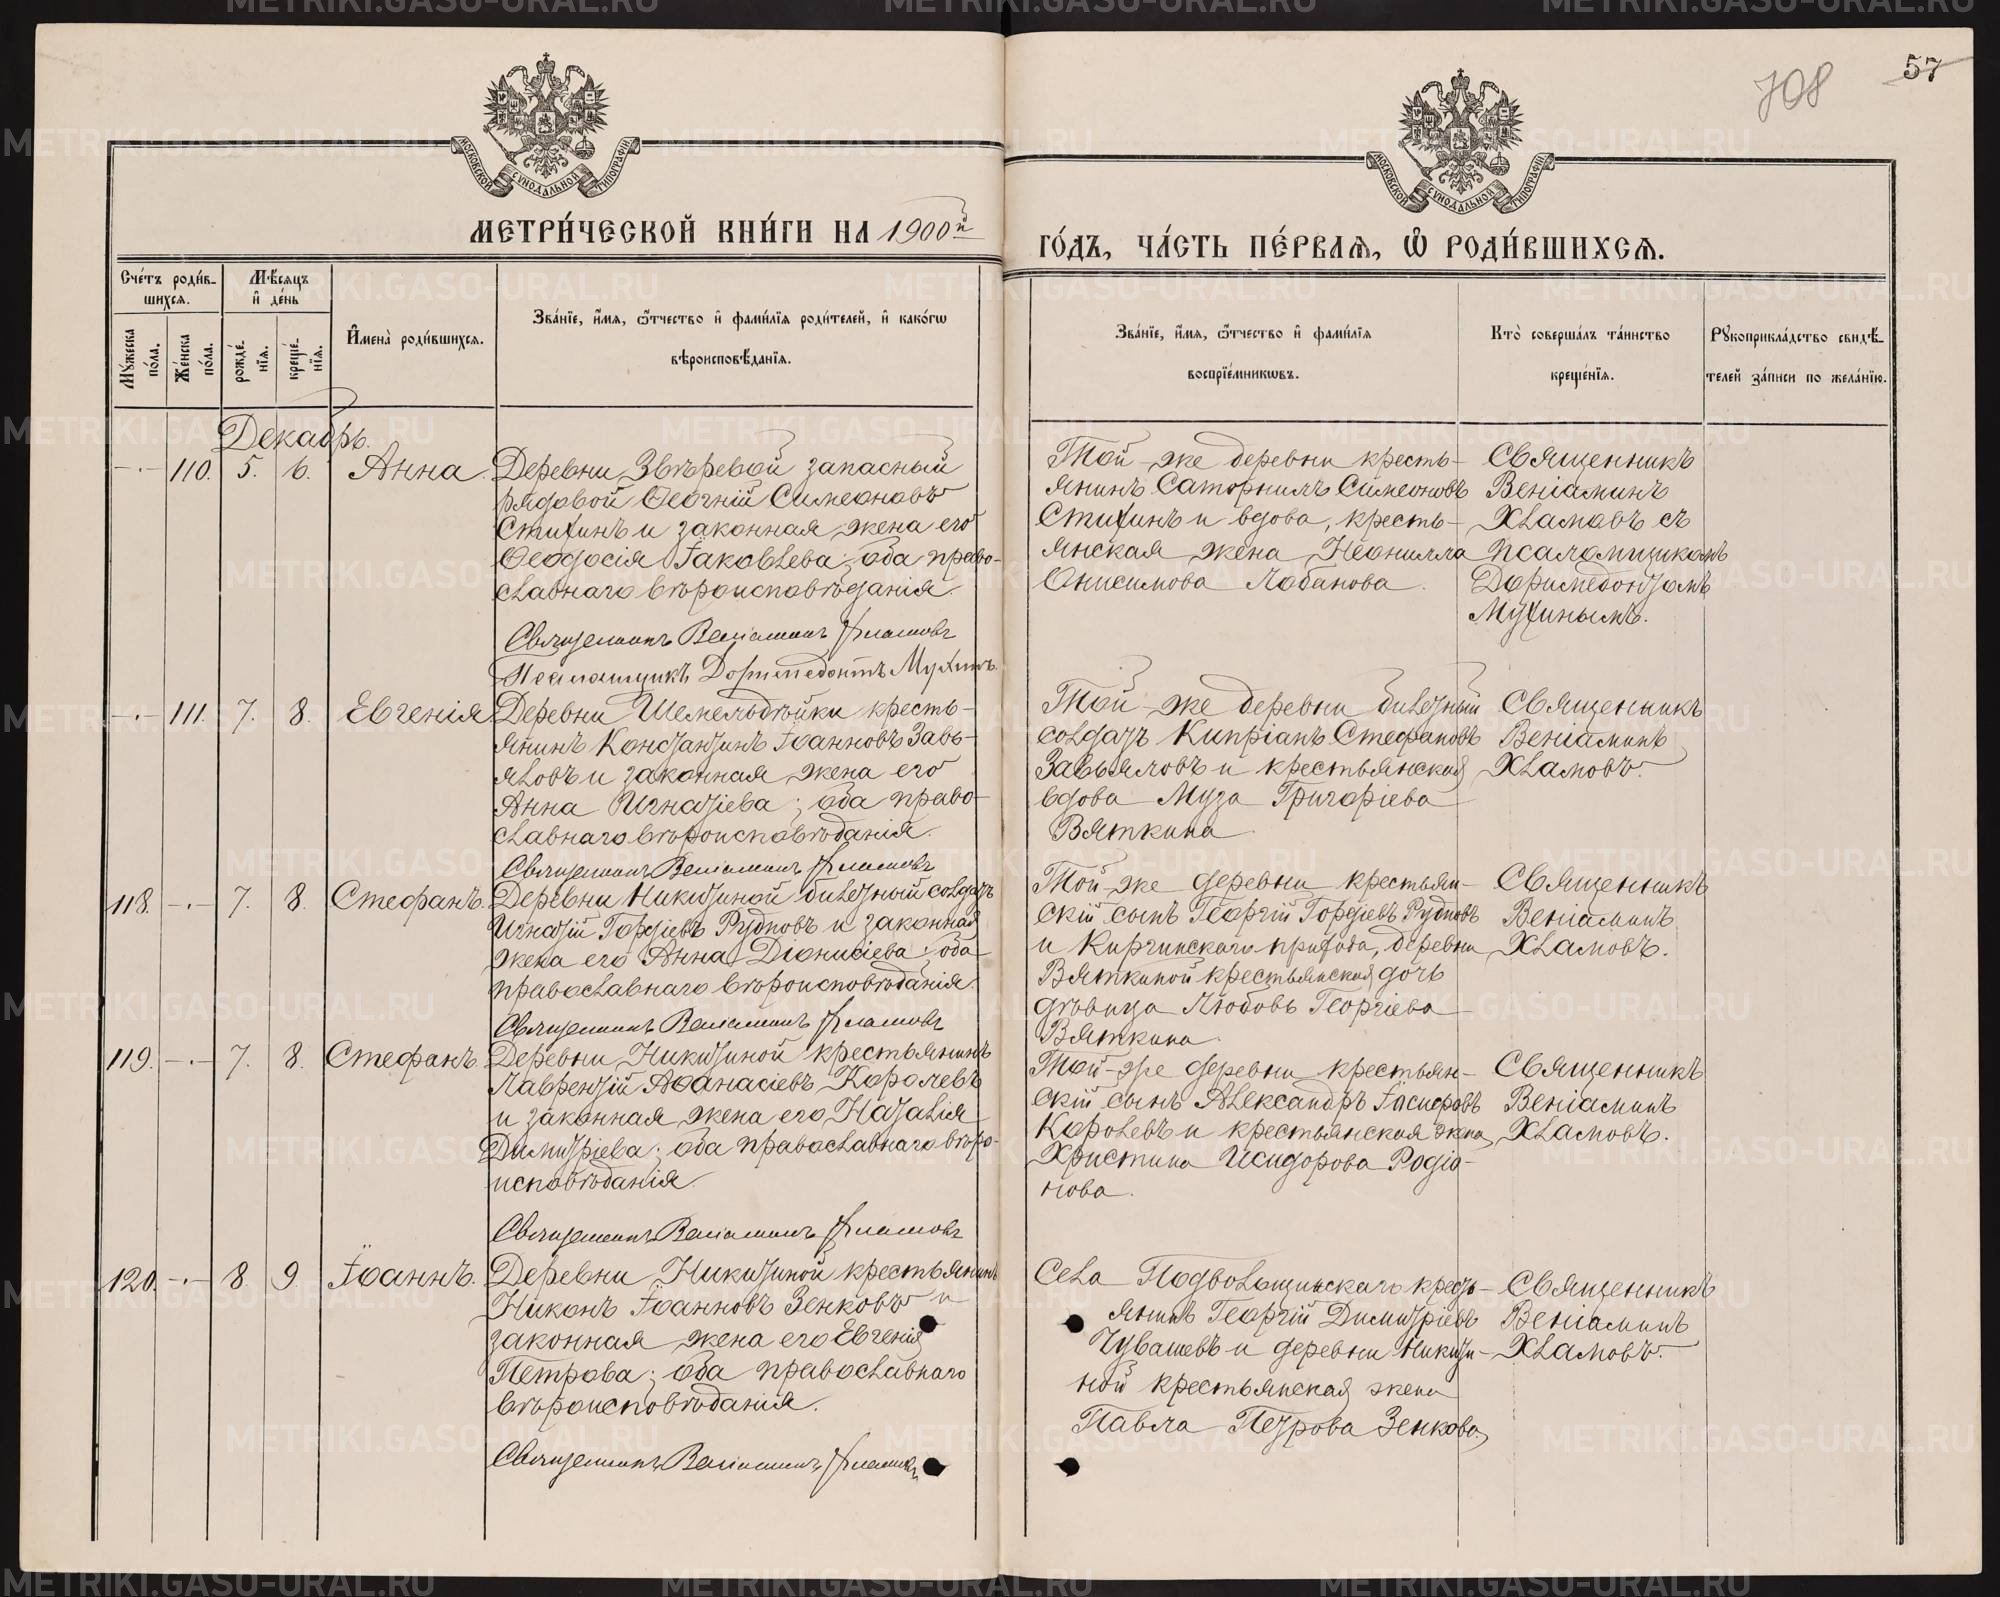 708
57
МОСКОВСКОЙ СУНОДАЛЬНОЙ ТИПОГРАФІИ
МОСКОВСКОЙ СУНОДАЛЬНОЙ ТИПОГРАФІИ
МЕТРИ́ЧЕСКОЙ КНИ́ГИ НА 1900й
ГО́ДЪ, ЧА́СТЬ ПЕ́РВАѦ, Ѽ РОДИ́ВШИХСѦ.
Сче́тъ роди́в-
шихсѧ.
Мѣ́сѧцъ
и҆ де́нь
Мꙋ́жеска
по́ла.
Же́нска
по́ла.
рожде́-
нїѧ.
креще́-
нїѧ.
И҆мена̀ роди́вшихсѧ.
Зва́нїе, и҆́мѧ, ѻ҆́тчество и҆ фами́лїѧ роди́телей, и҆ како́гѡ
вѣроисповѣ́данїѧ.
Зва́нїе, и҆́мѧ, ѻ҆́тчество и҆ фами́лїѧ
воспрїе́мникѡвъ.
Кто̀ соверша́лъ та́инство
креще́нїѧ.
Рꙋкоприкла́дство свидѣ́-
телей за́писи по жела́нїю.
Декабрь.
-·- 110. 5. 6. Анна.
Деревни Звѣревой запасный
рядовой Ѳеогній Симеоновъ
Стихинъ и законная жена его
Ѳеодосія Іаковлева; оба право-
славнаго вѣроисповѣданія.
Священникъ Веніаминъ Хламовъ
Псаломщикъ Доримедонтъ Мухинъ.
Той-же деревни кресть-
янинъ Саторнилъ Симеоновъ
Стихинъ и вдова, кресть-
янская жена Неонилла
Онисимова Лобанова.
Священникъ
Веніаминъ
Хламовъ съ
псаломщикомъ
Доримедонтомъ
Мухинымъ.
-·- 111. 7. 8. Евгенія
Деревни Шемельдѣйки кресть-
янинъ Константинъ Іоанновъ Завь-
яловъ и законная жена его
Анна Игнатіева; оба право-
славнаго вѣроисповѣданія.
Священникъ Веніаминъ Хламовъ
Той-же деревни билетный
солдатъ Кипріанъ Стефановъ
Завьяловъ и крестьянская
вдова Муза Григоріева
Вяткина
Священникъ
Веніаминъ
Хламовъ.
118. -·- 7. 8. Стефанъ.
Деревни Никитиной билетный солдатъ
Игнатій Гордіевъ Рудновъ и законная
жена его Анна Діонисіева; оба
православнаго вѣроисповѣданія.
Священникъ Веніаминъ Хламовъ
Той-же деревни крестьян-
скій сынъ Георгій Гордіевъ Рудновъ
и Киргинскаго прихода, деревни
Вяткиной крестьянская дочь
дѣвица Любовь Георгіева
Вяткина.
Священникъ
Веніаминъ
Хламовъ.
119. -·- 7. 8. Стефанъ.
Деревни Никитиной крестьянинъ
Лаврентій Аѳанасіевъ Королевъ
и законная жена его Наталія
Димитріева; оба православнаго вѣро-
исповѣданія.
Священникъ Веніаминъ Хламовъ
Той-же деревни крестьян-
скій сынъ Александръ Іосифовъ
Королевъ и крестьянская жена
Христина Исидорова Родіо-
нова.
Священникъ
Веніаминъ
Хламовъ.
120. -·- 8. 9. Іоаннъ.
Деревни Никитиной крестьянинъ
Никонъ Іоанновъ Зенковъ и
законная жена его Евгенія
Петрова; оба православнаго
вѣроисповѣданія.
Священникъ Веніаминъ Хламовъ
Села Подволощинскаго кресть-
янинъ Георгій Димитріевъ
Чувашевъ и деревни Никити-
ной крестьянская жена
Павла Петрова Зенкова.
Священникъ
Веніаминъ
Хламовъ.
METRIKI.GASO-URAL.RU